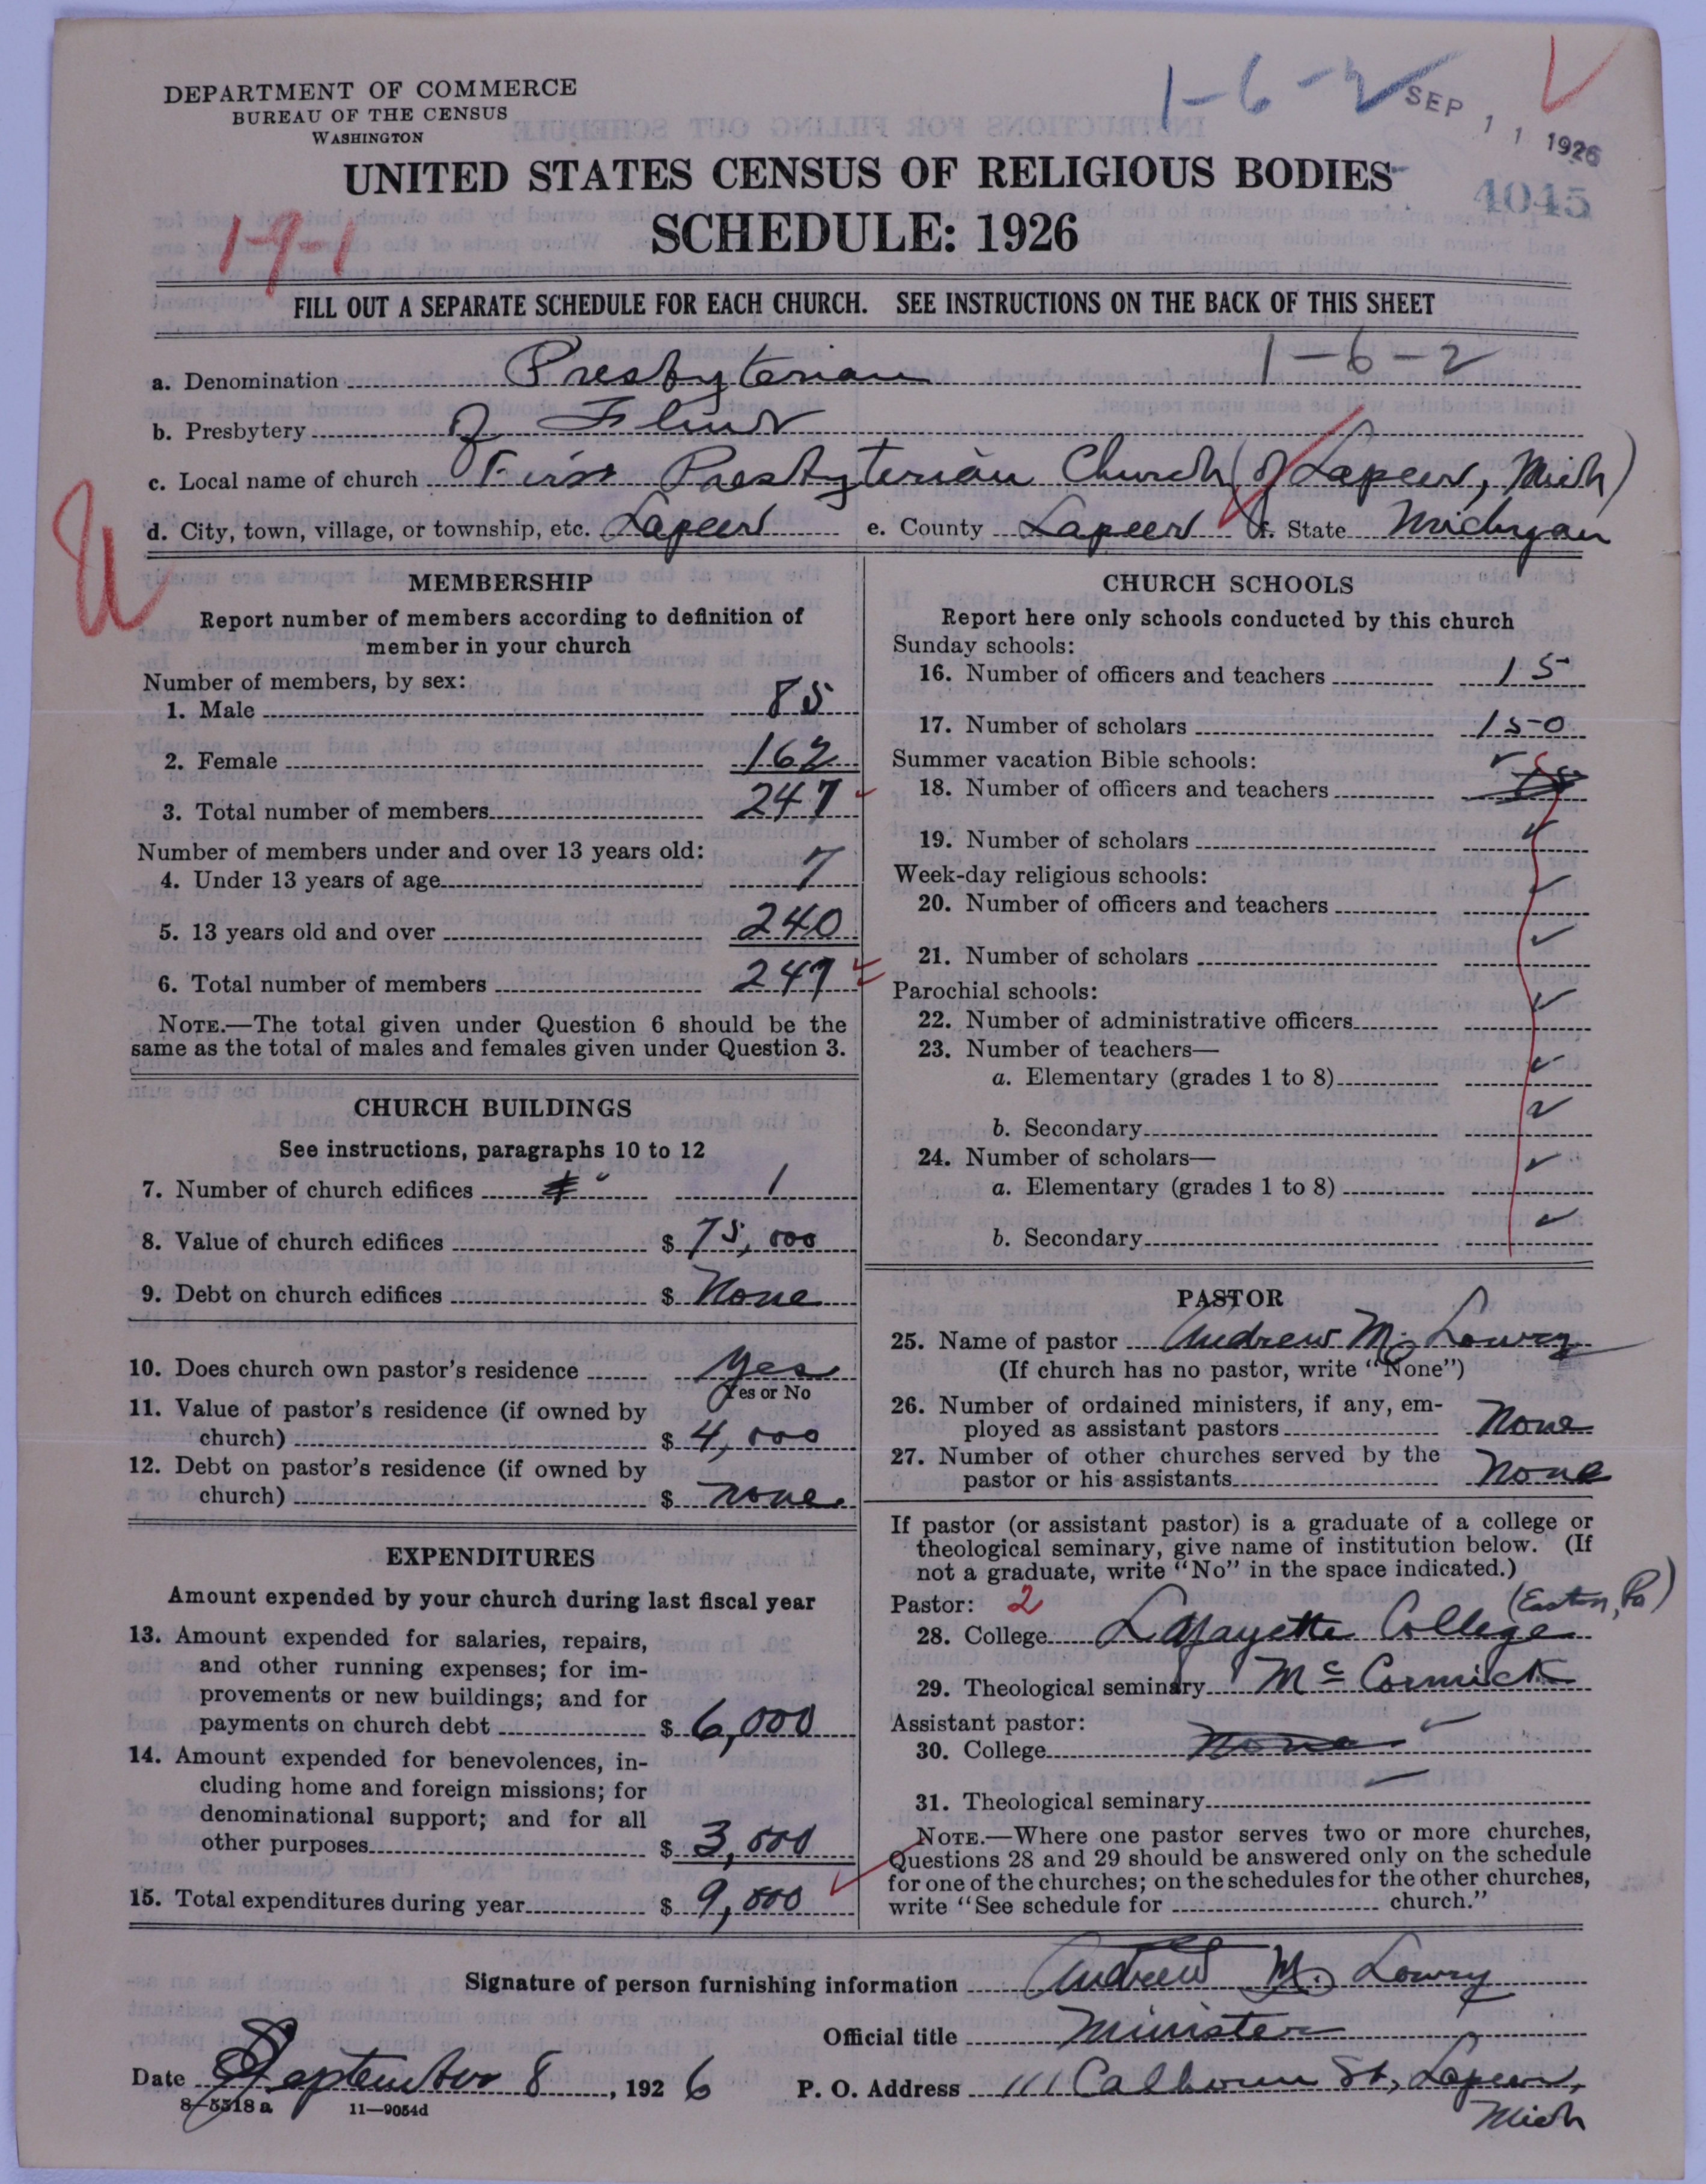 DEPARTMENT OF COMMERCE
BUREAU OF THE CENSUS
WASHINGTON
1-6-2
SEP 11 1926
4045
UNITED STATES CENSUS OF RELIGIOUS BODIES
SCHEDULE: 1926
19-1
FILL OUT A SEPARATE SCHEDULE FOR EACH CHURCH. SEE INSTRUCTIONS ON THE BACK OF THIS SHEET
a. Denomination Presbyterian 1-6-2
b. Presbytery of Flint
c. Local name of church First Presbyterian Church (of Lapeer, Mich)
d. City, town, village, or township, etc. Lapeer e. County Lapeer f. State Michigan
MEMBERSHIP
Report number of members according to definition of
member in your church
Number of members, by sex:
1. Male 85
2. Female 162
3. Total number of members 247
Number of members under and over 13 years old:
4. Under 13 years of age 7
5. 13 years old and over 240
6. Total number of members 247
NOTE.—The total given under Question 6 should be the
same as the total of males and females given under Question 3.
CHURCH BUILDINGS
See instructions, paragraphs 10 to 12
7. Number of church edifices 1
8. Value of church edifices $ 75,000
9. Debt on church edifices $ None
10. Does church own pastor's residence Yes
Yes or No
11. Value of pastor's residence (if owned by
church) $ 4,000
12. Debt on pastor's residence (if owned by
church) $ none
EXPENDITURES
Amount expended by your church during last fiscal year
13. Amount expended for salaries, repairs,
and other running expenses; for im-
provements or new buildings; and for
payments on church debt $ 6,000
14. Amount expended for benevolences, in-
cluding home and foreign missions; for
denominational support; and for all
other purposes $ 3,000
15. Total expenditures during year $ 9,000
CHURCH SCHOOLS
Report here only schools conducted by this church
Sunday schools:
16. Number of officers and teachers 15
17. Number of scholars 150
Summer vacation Bible schools:
18. Number of officers and teachers
19. Number of scholars
Week-day religious schools:
20. Number of officers and teachers
21. Number of scholars
Parochial schools:
22. Number of administrative officers
23. Number of teachers—
a. Elementary (grades 1 to 8)
b. Secondary
24. Number of scholars—
a. Elementary (grades 1 to 8)
b. Secondary
PASTOR
25. Name of pastor Andrew M. Lowry
(If church has no pastor, write "None")
26. Number of ordained ministers, if any, em-
ployed as assistant pastors None
27. Number of other churches served by the
pastor or his assistants None
If pastor (or assistant pastor) is a graduate of a college or
theological seminary, give name of institution below. (If
not a graduate, write "No" in the space indicated.)
Pastor: 2 (Easton, Pa)
28. College Lafayette College
29. Theological seminary McCormick
Assistant pastor:
30. College None
31. Theological seminary
NOTE.—Where one pastor serves two or more churches,
Questions 28 and 29 should be answered only on the schedule
for one of the churches; on the schedules for the other churches,
write "See schedule for church."
Signature of person furnishing information Andrew M. Lowry
Official title Minister
Date September 8, 1926 P. O. Address 111 Calhoun St, Lapeer,
Mich
8-5518a 11-9054d